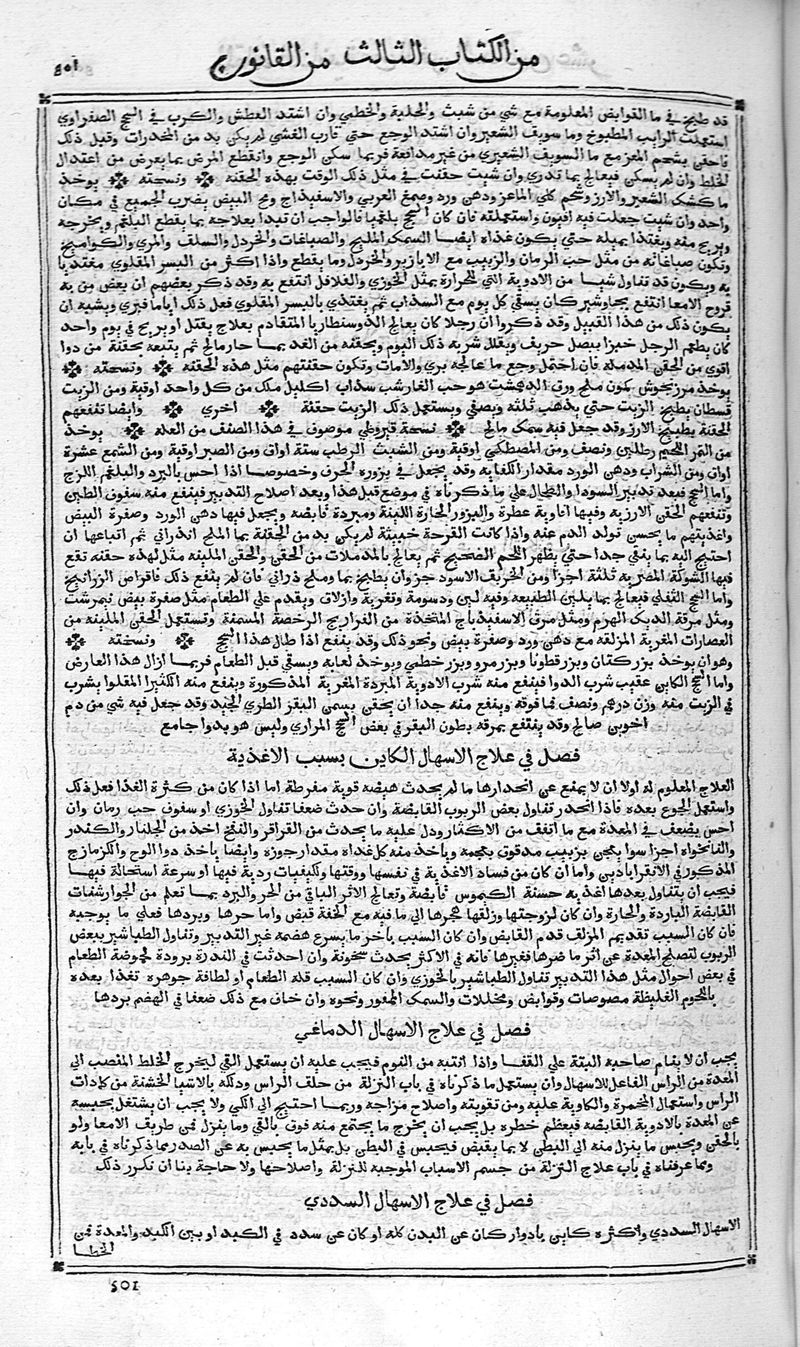 من الكتاب الثالث من القانون
٥٠١
قد طبخ في ما القوابض المعلومة مع شي من شبث والحلبة والخطمي وان اشتد العطش والكرب في السحج الصفراوي
استعملت الرايب المطبوخ وما سويق الشعير وان اشتد الوجع حتي قارب الغشي لم يكن بد من المخدرات وقبل ذلك
فاحقن بشحم المعز مع ما السويق الشعيري من غير مدافعة فربما سكن الوجع وانقطع المرض بما يعرض من اعتدال
الخلط وان لم يسكن فيعالج بما تدري وان شيت حقنت في مثل ذلك الوقت بهذه الحقنه ونسخته يوخذ
ما كشك الشعير والارز وشحم كلي الماعز ودهن ورد وصمغ العربي والاسفيذاج ومح البيض يضرب الجميع في مكان
واحد وان شيت جعلت فيه افيون واستعملته فان كان السحج بلغميا فالواجب ان تبدا بعلاجه بما يقطع البلغم ويخرجه
ويريح منه ويغتذا بميله حتي يكون غذاه ايضا السمك المليح والصباغات والخردل والسلف والمري والكواميخ
وتكون صباغاته من مثل حب الرمان والزبيب مع الابازير والخردل وما يقطع واذا اكثر من البسر المقلوي مغتذيا
به ويكون قد تناول شيا من الادوية التي للحرارة بمثل الخوزي والفلافل انتفع به وقد ذكر بعضهم ان بعض من به
قروح الامعا انتفع بجاوشير كان يسقي كل يوم مع السذاب ثم يغتذي بالبسر المقلوي فعل ذلك اياما فبري ويشبه ان
يكون ذلك من هذا القبيل وقد ذكروا ان رجلا كان يعالج الذوسنطاريا المتقادم بعلاج يقتل او يريح في يوم واحد
كان يطعم الرجل خبزا ببصل حريف ويقلل شربه ذلك اليوم ويحقنه من الغد بما حار مالح ثم يتبعه بحقنة من دوا
اقوي من الحقن المدمله فان احتمل وجع ما عالجه بري والامات وتكون حقنتهم مثل هذه الحقنه ونسخته
يوخذ مرزنجوش كمون ملح ورق الدهمشت هو حب الغار شب سذاب اكليل ملك من كل واحد اوقية ومن الزيت
قسطان يطبخ الزيت حتي يذهب ثلثه ويصفي ويستعمل ذلك الزيت حقنة اخري وايضا تنفعهم
الحقنة بطبيخ الارز وقد جعل فيه سمك مالح نسخة قيروطي موصوف في هذا الصنف من العلة يوخذ
من التمر اللحيم رطلين ونصف ومن المصطكي اوقية ومن الشبث الرطب ستة اواق ومن الصبر اوقية ومن الشمع عشرة
اواق ومن الشراب ودهن الورد مقدار الكفاية وقد يجعل في بزوره الحرف وخصوصا اذا احس بالبرد والبلغم اللزج
واما السحج فبعد تدبير السودا والطحال علي ما ذكرناه في موضع قبل هذا وبعد اصلاح التدبير فينفع منه سفوف الطين
وتنفعهم الحقن الارزيه وفيها افاوية عطرة والبزور الحارة اللينة ومبردة قابضه ويجعل فيها دهن الورد وصفرة البيض
واغذيتهم ما يحسن تولد الدم عنه واذا كانت القرحة خبيثة لم يكن بد من الحقنة بما الملح اندراني ثم اتباعها ان
احتيج اليه بما ينقي جدا حتي يظهر اللحم الصحيح ثم يعالج بالمدملات من الحقن والحقن الملينه مثل لهذه حقنه تقع
فيها الشوكة المصريه ثلثة اجزآ ومن الخربق الاسود جزوان يطبخ بما وملح ذراني فان لم ينفع ذلك فاقراص الزرانيخ
واما السحج الثفلي فيعالج بما يلين الطبيعه وفيه لين ودسومة وتغرية وازلاق ويقدم علي الطعام مثل صفرة بيض نيمرشت
ومثل مرقة الديك الهرم ومثل مرق الاسفيذباج المتخذه من الفراريج الرخصة المسمنة وتستعمل الحقن الملينه من
العصارات المغرية المزلقه مع دهن ورد وصفرة بيض ونحو ذلك وقد ينفع اذا طال هذا السحج ونسخته
وهو ان يوخذ بزر كتان وبزر قطونا وبزر مرو وبزر خطمي ويوخذ لعابه ويسقي قبل الطعام فربما ازال هذا العارض
واما السحج الكاين عقيب شرب الدوا فينفع منه شرب الادوية المبردة المغرية المذكورة وينفع منه الكثيرا المقلوا يشرب
في الزيت منه وزن درهم ونصف فما فوقه وينفع منه جدا ان يحقن بسمن البقر الطري الجيد وقد جعل فيه شي من دم
اخوين صالح وقد ينتفع بمرقه بطون البقر في بعض السحج المراري وليس هو بدوا جامع
فصل في علاج الاسهال الكاين بسبب الاغذية
العلاج المعلوم له اولا ان لا يمنع عن انحدارها ما لم يحدث هيضه قوية مفرطة اما اذا كان من كثرة الغذا فعل ذلك
واستعمل الجوع بعده فاذا انحدر تناول بعض الربوب القابضة وان حدث ضعفا تناول الخوزي او سفوف حب رمان وان
احس بضعف في المعدة مع ما اتفق من الاكثار ودل عليه ما يحدث من القراقر والنفخ اخذ من الجلنار والكندر
والنانخواه اجزا سوا يعجن بزبيب مدقوق بعجمه وياخذ منه كل غداه مقدار جوزه وايضا ياخذ دوا الوج والكزمازج
المذكور في الاقراباذين واما ان كان من فساد الاغذية في نفسها ووقتها وكيفيات ردية فيها او سرعة استحالة فيها
فيجب ان يتناول بعدها اغذيه حسنة الكيموس قابضة وتعالج الاثر الباقي من الحر والبرد بما تعلم من الجوارشنات
القابضة الباردة والحارة وان كان للزوجتها وزلقها هجرها الي ما فيه مع الخفة قبض واما حرها وبردها فعلي ما يوجبه
فان كان السبب تقديم المزلق قدم القابض وان كان السبب ياخر ما يسرع هضمه غير التدبير وتناول الطباشير ببعض
الربوب لتصلح المعدة عن اثر ما ضرها فغيرها فانه في الاكثر يحدث سخونة وان احدثت في الندرة برودة لحموضة الطعام
في بعض احوال مثل هذا التدبير تناول الطباشير بالخوزي وان كان السبب قله الطعام او لطافة جوهره تغذا بعده
باللحوم الغليظة مصوصات وقوابض ومخللات والسمك الممقور ونحوه وان خاف مع ذلك ضعفا في الهضم بردها
فصل في علاج الاسهال الدماغي
يجب ان لا ينام صاحبه البتة علي القفا واذا انتبه من النوم فيجب عليه ان يستعمل القي ليخرج الخلط المنصب الي
المعدة من الراس الفاعل للاسهال وان يستعمل ما ذكرناه في باب النزلة من حلق الراس ودلكه بالاشيا الخشنة من كادات
الراس واستعمال المحمرة والكاوية عليه ومن تقويته واصلاح مزاجه وربما احتيج الي الكي ولا يجب ان يشتغل بحبسه
عن المعدة بالادوية القابضه فيعظم خطره بل يجب ان يخرج ما يجتمع منه فوق بالقي وما ينزل فمن طريق الامعا ولو
بالحقن ويحبس ما ينزل منه الي البطي لا بما يقبض فيحبس في البطن بل بمثل ما يحبس به عن الصدر مما ذكرناه في بابه
ومما عرفناه في باب علاج النزلة من حسم الاسباب الموجبه للنزلة واصلاحها ولا حاجة بنا ان نكرر ذلك
فصل في علاج الاسهال السددي
الاسهال السددي واكثره كاين بادوار كان عن البدن كله او كان عن سدد في الكبد او بين الكبد والمعدة فمن
الخطا
501